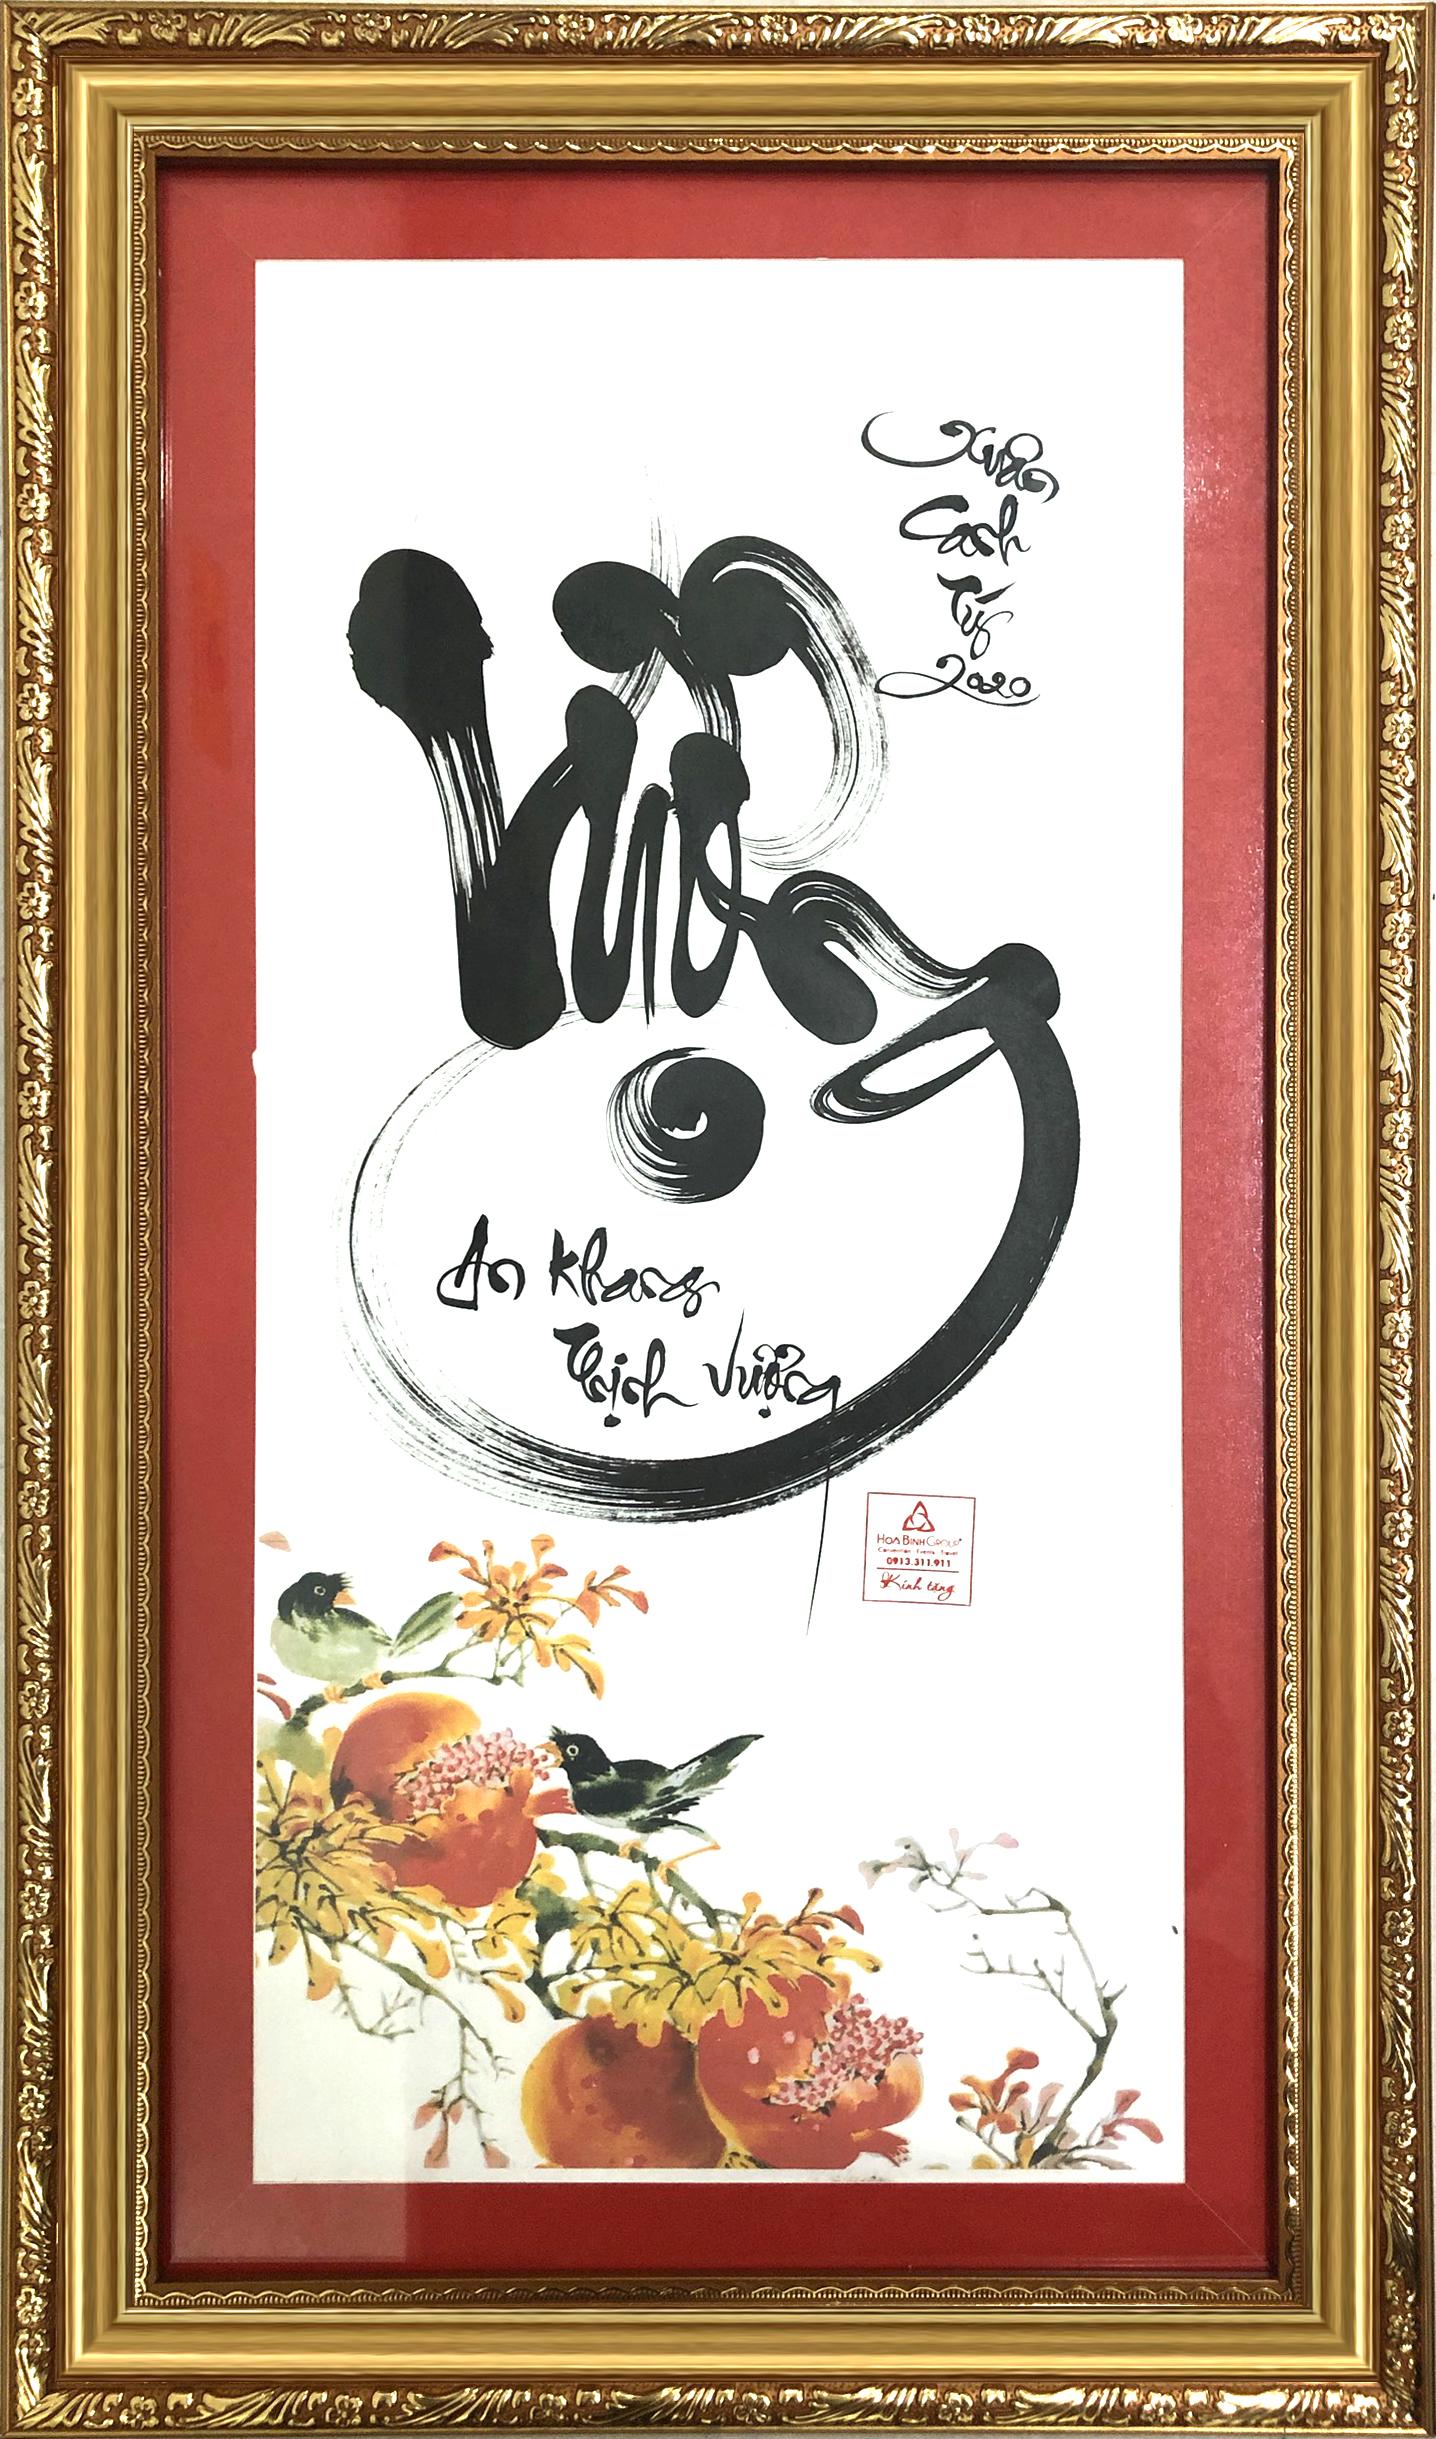 Xuân
Canh
Tý
2020
Vượng
An Khang
Thịnh Vượng
HOA BINH GROUP
Convention Events Travel
0913.311.911
Kính tặng